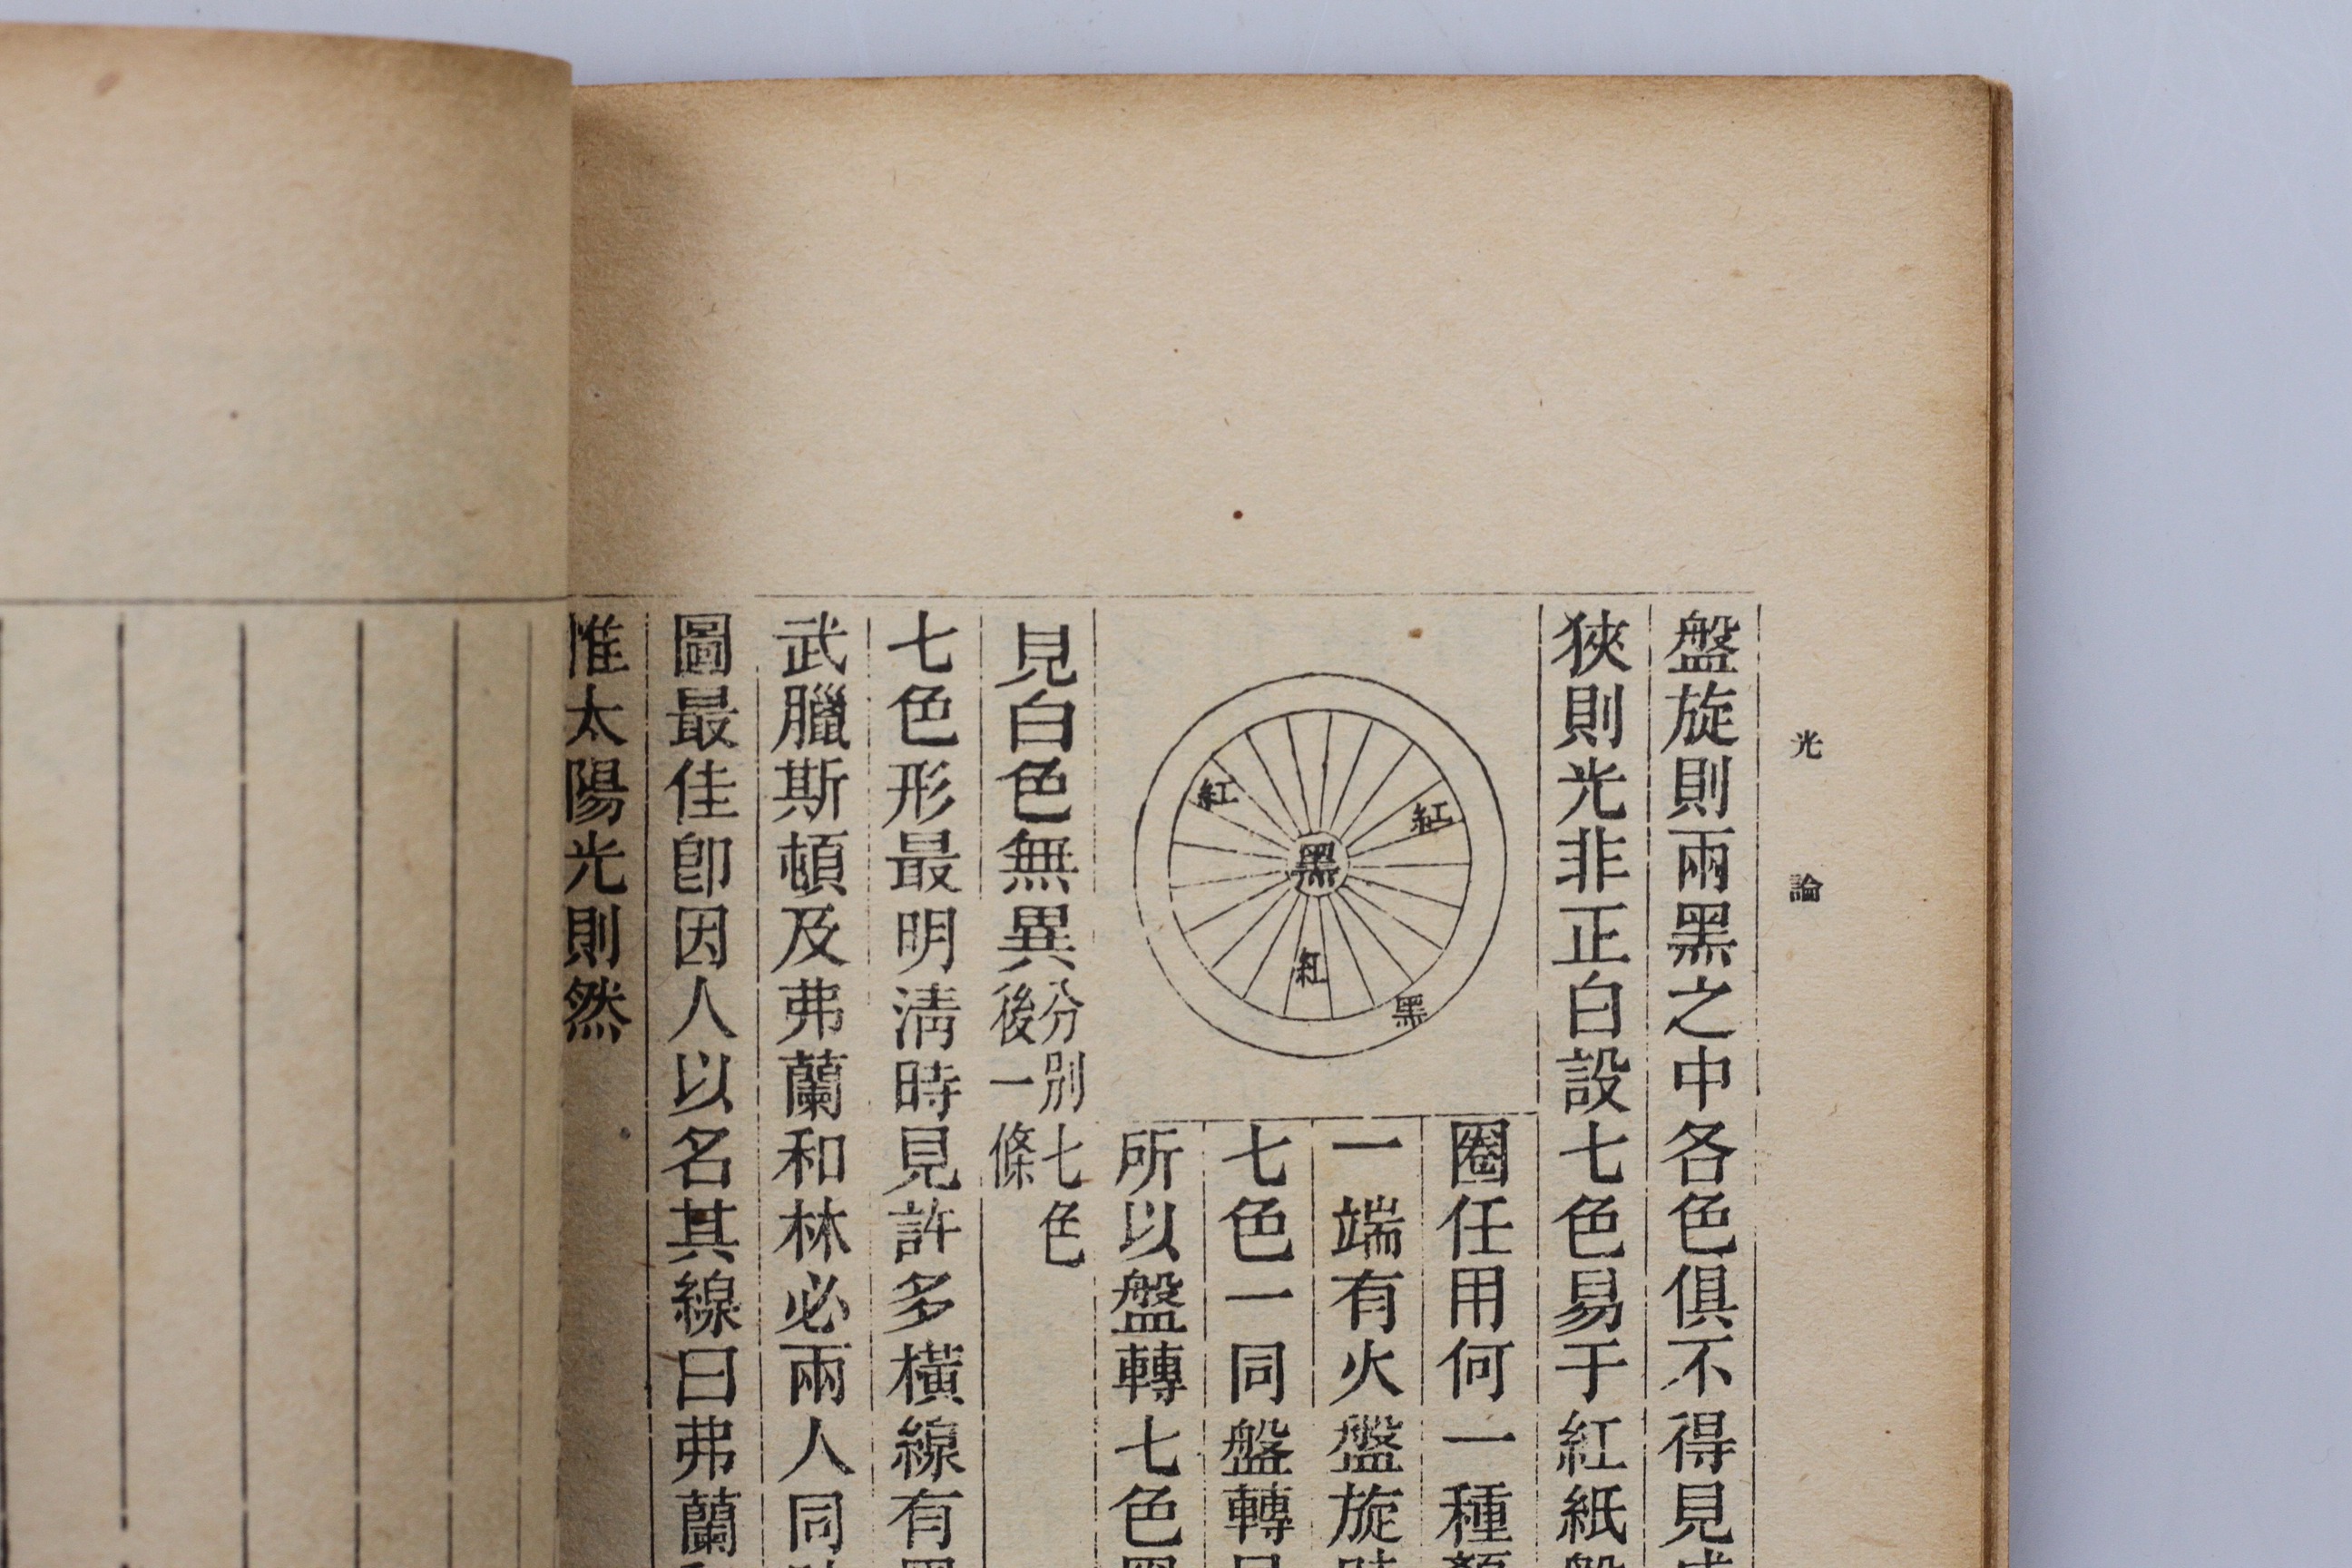 光論
盤旋則兩黑之中各色俱不得見
狹則光非正白設七色易于紅紙盤
紅
紅
黑
紅
黑
圈任用何一種顏
一端有火盤旋時
七色一同盤轉
所以盤轉七色
見白色無異分別七色
後一條
七色形最明淸時見許多橫線有
武臘斯頓及弗蘭和林必兩人同
圖最佳卽因人以名其線曰弗蘭
惟太陽光則然